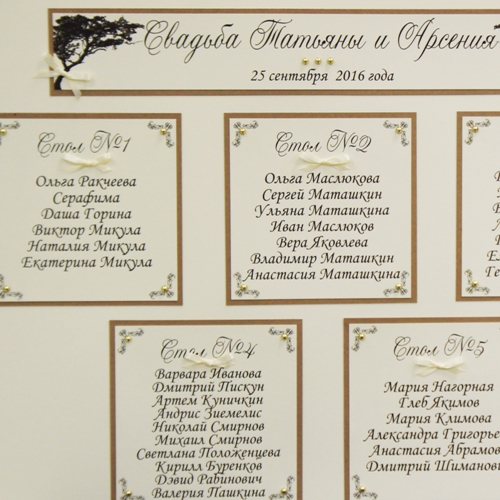 Свадьба Татьяны и Арсения
25 сентября 2016 года
Стол №1
Ольга Ракчеева
Серафима
Даша Горина
Виктор Микула
Наталия Микула
Екатерина Микула
Стол №2
Ольга Маслюкова
Сергей Маташкин
Ульяна Маташкина
Иван Маслюков
Вера Яковлева
Владимир Маташкин
Анастасия Маташкина
Стол №4
Варвара Иванова
Дмитрий Пискун
Артем Куничкин
Андрис Зиемелис
Николай Смирнов
Михаил Смирнов
Светлана Положенцева
Кирилл Буренков
Дэвид Рабинович
Валерия Пашкина
Стол №5
Мария Нагорная
Глеб Якимов
Мария Климова
Александра Григорье
Анастасия Абрамов
Дмитрий Шиманови